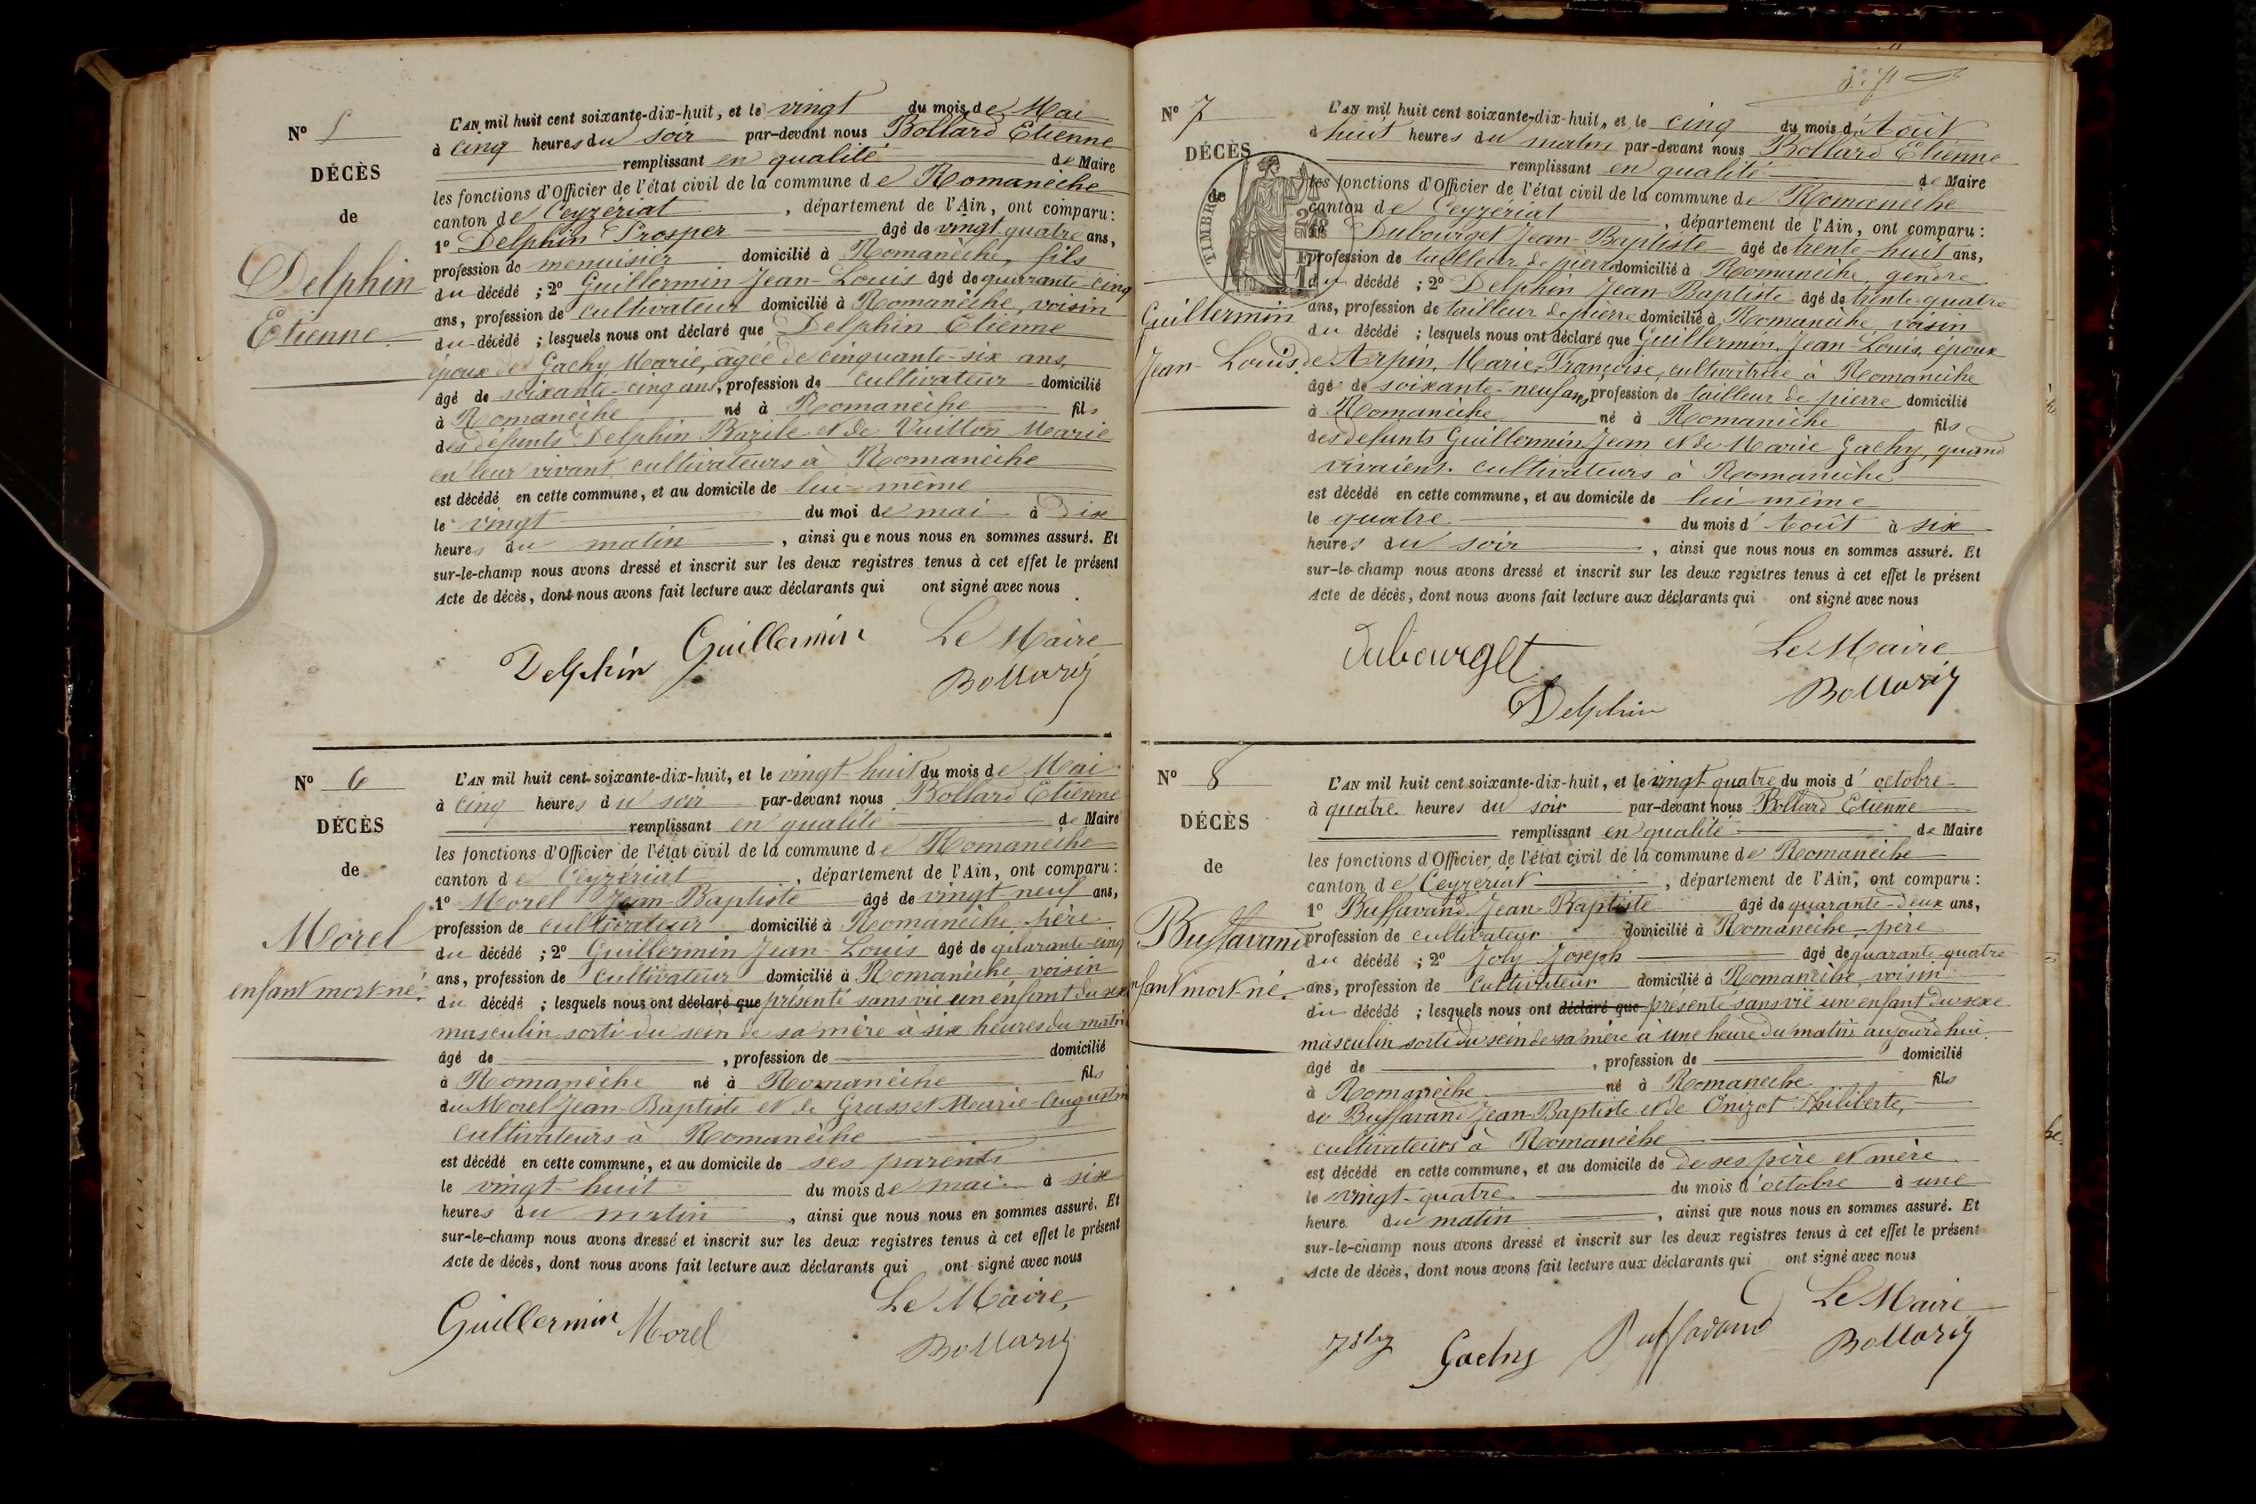 N° 5
DÉCÈS
de
Delphin
Etienne
L'AN mil huit cent soixante-dix-huit, et le vingt du mois de Mai
à cinq heures du soir par-devant nous Bollard Etienne
remplissant en qualité de Maire
les fonctions d'Officier de l'état civil de la commune de Romanèche
canton de Ceyzériat, département de l'Ain, ont comparu:
1° Delphin Prosper âgé de vingt quatre ans,
profession de menuisier domicilié à Romanèche, fils
du décédé ; 2° Guillermin Jean-Louis âgé de quarante-cinq
ans, profession de cultivateur domicilié à Romanèche, voisin
du décédé ; lesquels nous ont déclaré que Delphin Etienne
époux de Gachy Marie, âgée de cinquante-six ans,
âgé de soixante-cinq ans, profession de cultivateur domicilié
à Romanèche né à Romanèche fils
des défunts Delphin Bazile et de Vuitton Marie
en leur vivant cultivateurs à Romanèche
est décédé en cette commune, et au domicile de lui-même
le vingt du moi de mai à dix
heures du matin, ainsi que nous nous en sommes assuré. Et
sur-le-champ nous avons dressé et inscrit sur les deux registres tenus à cet effet le présent
Acte de décès, dont nous avons fait lecture aux déclarants qui ont signé avec nous
Delphin Guillermin Le Maire
Bollard
N° 6
DÉCÈS
de
Morel
enfant mort-né.
L'AN mil huit cent soixante-dix-huit, et le vingt-huit du mois de Mai
à cinq heures du soir par-devant nous Bollard Etienne
remplissant en qualité de Maire
les fonctions d'Officier de l'état civil de la commune de Romanèche
canton de Ceyzériat, département de l'Ain, ont comparu:
1° Morel Jean-Baptiste âgé de vingt neuf ans,
profession de cultivateur domicilié à Romanèche père
du décédé ; 2° Guillermin Jean-Louis âgé de quarante-cinq
ans, profession de cultivateur domicilié à Romanèche voisin
du décédé ; lesquels nous ont déclaré que présenté sans vie un enfant du sexe
masculin sorti du sein de sa mère à six heures du matin
âgé de , profession de domicilié
à Romanèche né à Romanèche fils
du Morel Jean-Baptiste et de Grasset Marie-Augustin
cultivateurs à Romanèche
est décédé en cette commune, et au domicile de ses parents
le vingt-huit du mois de mai à six
heures du matin, ainsi que nous nous en sommes assuré. Et
sur-le-champ nous avons dressé et inscrit sur les deux registres tenus à cet effet le présent
Acte de décès, dont nous avons fait lecture aux déclarants qui ont signé avec nous
Guillermin Morel Le Maire,
Bollard
N° 7
DÉCÈS
de
TIMBRE
Guillermin
Jean-Louis
L'AN mil huit cent soixante-dix-huit, et le cinq du mois d'Août
à huit heures du matin par-devant nous Bollard Etienne
remplissant en qualité de Maire
les fonctions d'Officier de l'état civil de la commune de Romanèche
canton de Ceyzériat, département de l'Ain, ont comparu:
1° Dubourget Jean-Baptiste âgé de trente-huit ans,
profession de tailleur de pierre domicilié à Romanèche, gendre
du décédé ; 2° Delphin Jean-Baptiste âgé de trente-quatre
ans, profession de tailleur de pierre domicilié à Romanèche, voisin
du décédé ; lesquels nous ont déclaré que Guillermin, Jean-Louis, époux
de Arpin, Marie-Françoise, cultivatrice à Romanèche
âgé de soixante-neuf ans, profession de tailleur de pierre domicilié
à Romanèche né à Romanèche fils
des défunts Guillermin Jean et de Marie Gachy, quand
vivaient cultivateurs à Romanèche
est décédé en cette commune, et au domicile de lui-même
le quatre du mois d'Août à six
heures du soir, ainsi que nous nous en sommes assuré. Et
sur-le-champ nous avons dressé et inscrit sur les deux registres tenus à cet effet le présent
Acte de décès, dont nous avons fait lecture aux déclarants qui ont signé avec nous
Dubourget Le Maire
Delphin Bollard
N° 8
DÉCÈS
de
Buffavand
enfant mort-né.
L'AN mil huit cent soixante-dix-huit, et le vingt quatre du mois d'octobre
à quatre heures du soir par-devant nous Bollard Etienne
remplissant en qualité de Maire
les fonctions d'Officier de l'état civil de la commune de Romanèche
canton de Ceyzériat, département de l'Ain, ont comparu:
1° Buffavand Jean-Baptiste âgé de quarante-deux ans,
profession de cultivateur domicilié à Romanèche père
du décédé ; 2° Joly Joseph âgé de quarante quatre
ans, profession de cultivateur domicilié à Romanèche, voisin
du décédé ; lesquels nous ont déclaré que présenté sans vie un enfant du sexe
masculin sorti du sein de sa mère à une heure du matin aujourd'hui
âgé de , profession de domicilié
à Romanèche né à Romanèche fils
de Buffavand Jean-Baptiste et de Onizot Philiberte,
cultivateurs à Romanèche
est décédé en cette commune, et au domicile de de ses père et mère
le vingt-quatre du mois d'octobre à une
heure du matin, ainsi que nous nous en sommes assuré. Et
sur-le-champ nous avons dressé et inscrit sur les deux registres tenus à cet effet le présent
Acte de décès, dont nous avons fait lecture aux déclarants qui ont signé avec nous
Joly Gachy Buffavand Le Maire
Bollard